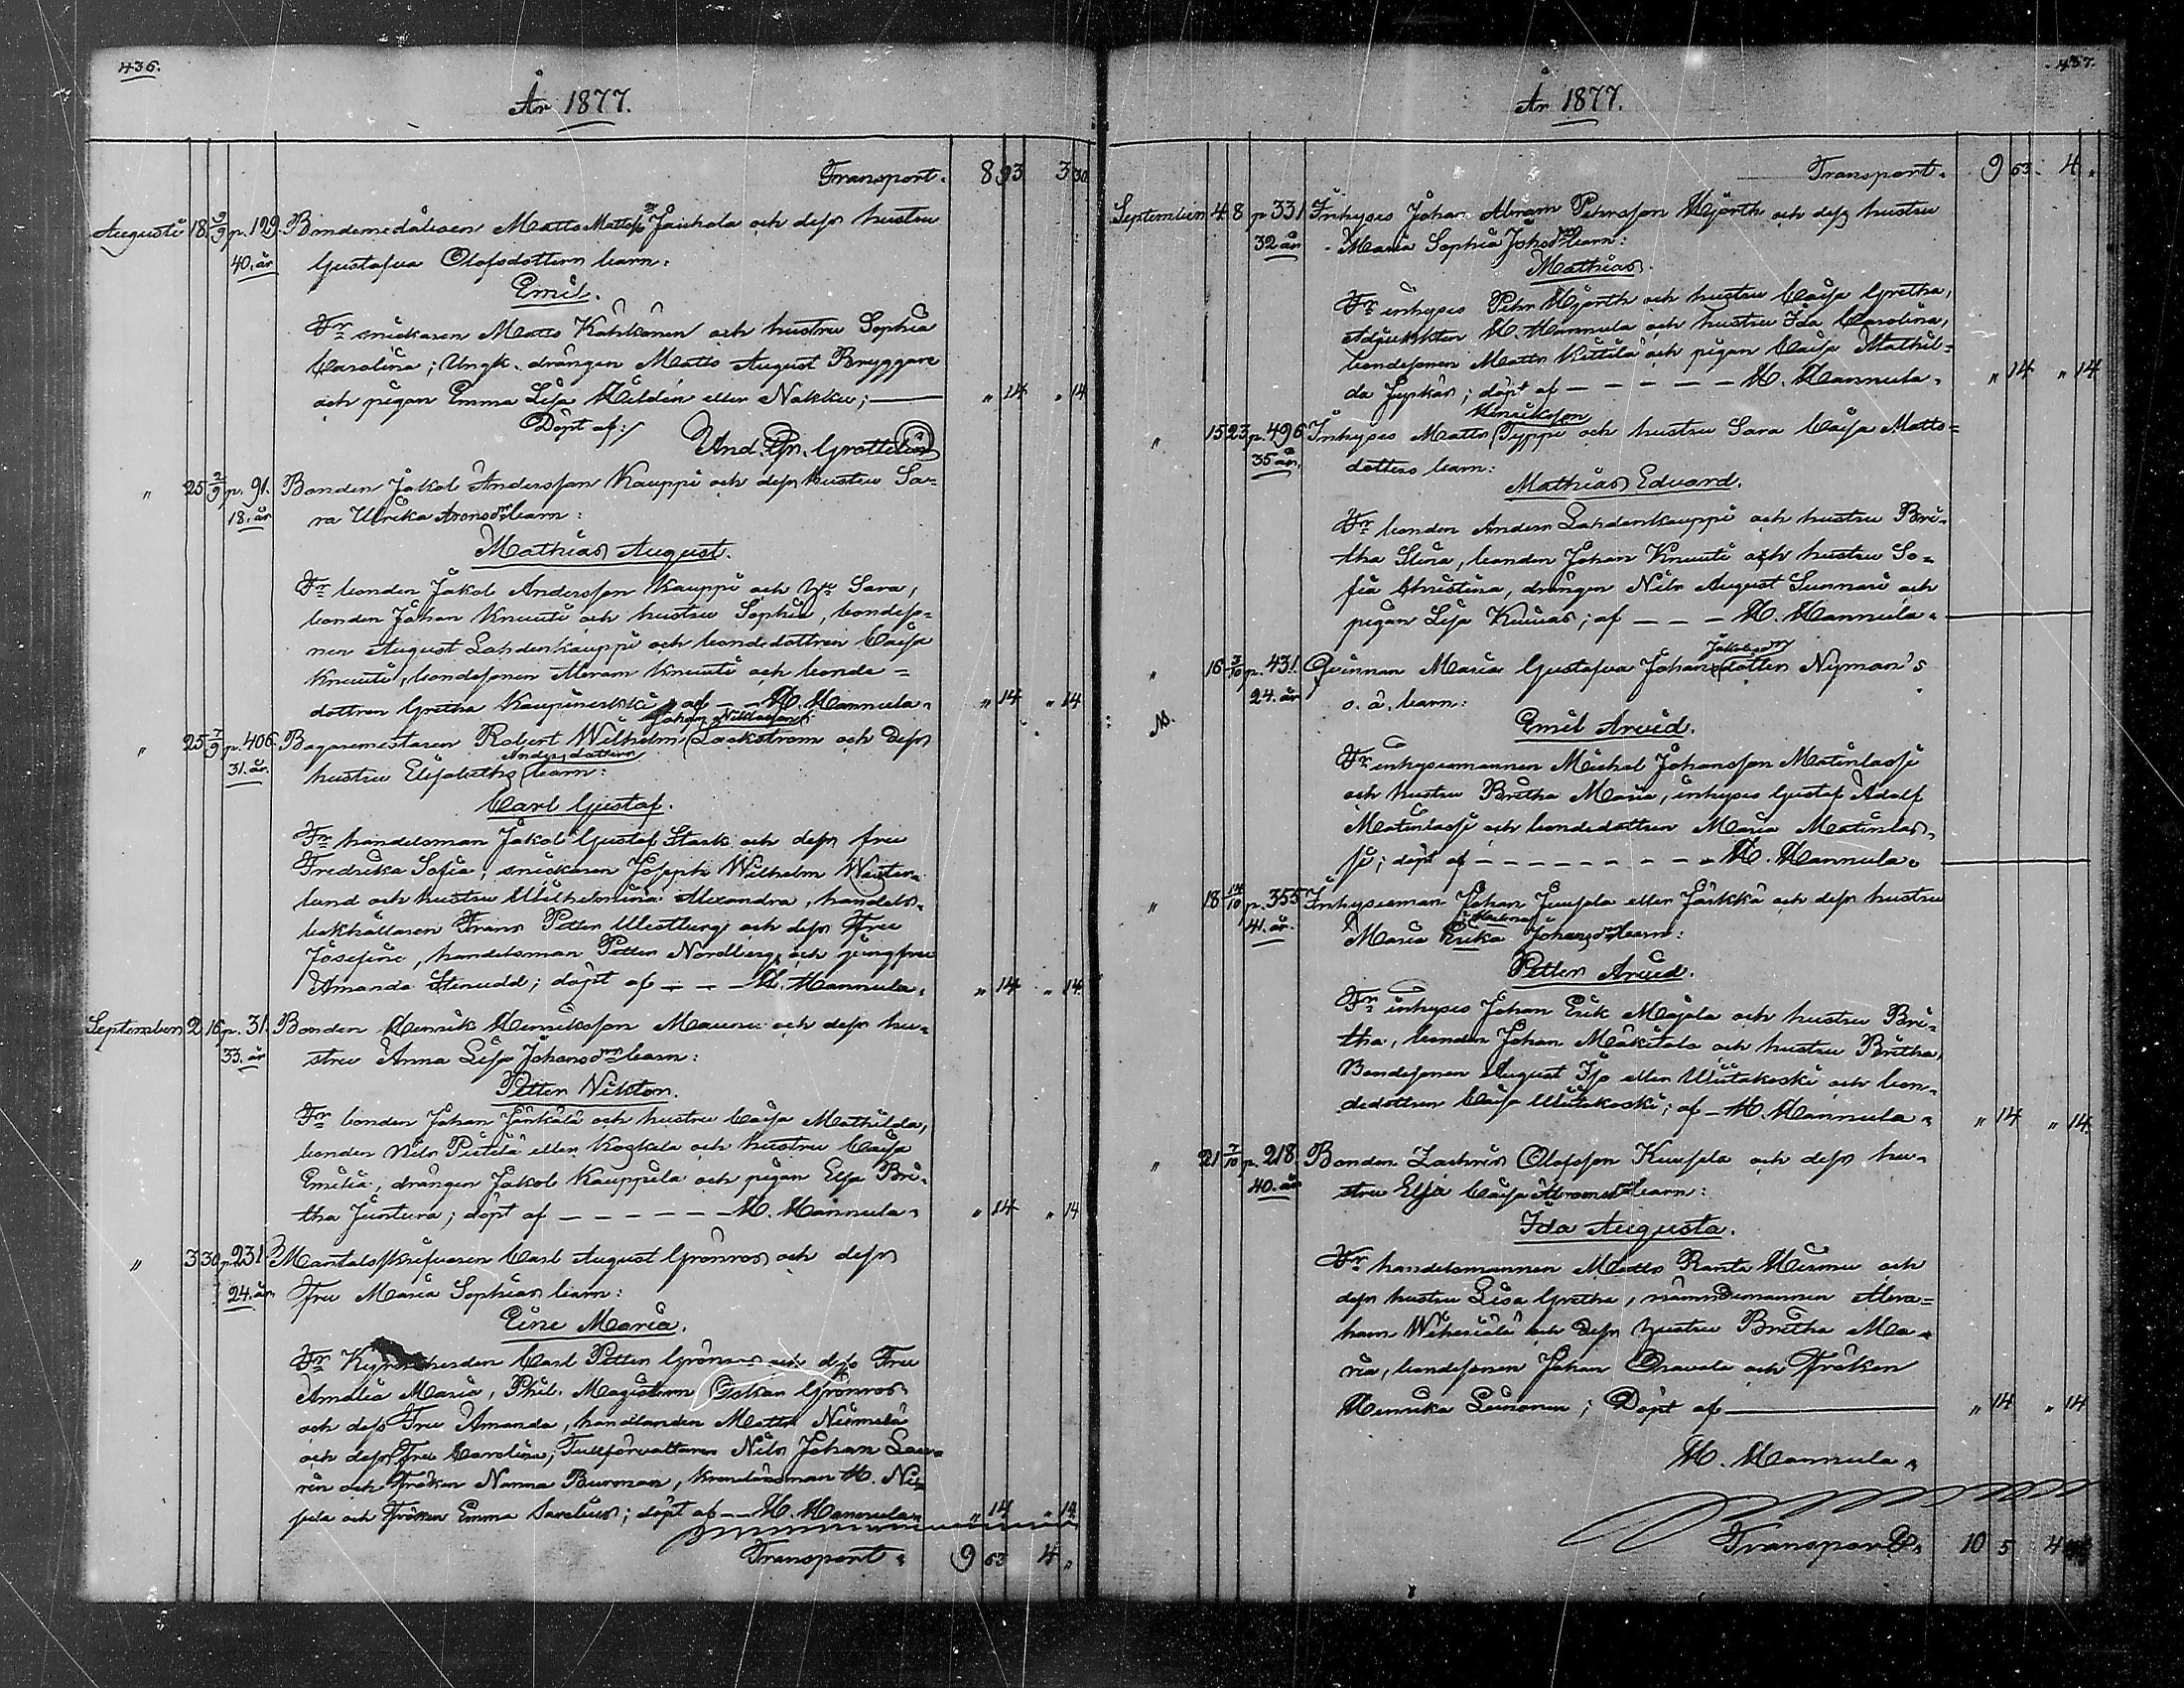 436.
År 1877.
Transport. 8 93 3 30
Augusti 18 2/9 p. 129. Matts Mattss:n Jaukola och dess hustru
40. år Gustafva Olofsdotters barn:
Emil.
Fr snickaren Matts Kähkönen och hustru Sophia
Carolina; Ungk. drängen Matts August Bryggare
och pigan Emma Lisa eller Nakku; — " 14 " 14
Döpt af:
And. Gr.
" 25 2/9 p. 91. Bonden Jakob Andersson Kauppi och dess hustru Sa-
18. år ra Ulrika Aronsdrs barn:
Mathias August.
Fr bonden Jakob Andersson Kauppi och h:u Sara,
bonden Johan Knuuti och hustru Sophia, bondeso-
nen August Lahdenkauppi och bondedottren Caisa
Knuuti, bondesonen Abram Knuuti och bonde-
dottren Gretha af — M. Mannula. " 14 " 14
Johan Niklasson
" 25 7/9 p. 406 Bagaremästaren Robert Wilhelm Lackström och dess
Andersdotters
31. år. hustru Elisabeths barn:
Carl Gustaf.
Fr handelsman Jakob Gustaf Stark och dess fru
Fredrika Sofia, snickaren Joseph Wilhelm Wester-
lund och hustru Wilhelmina Alexandra, handels-
bokhållaren Frans Petter Westberg och dess Fru
Josefine, handelsman Petter Nordberg och jungfru
Amanda Stenudd; döpt af — — M. Mannula. " 14 " 14.
September 2 16 p. 31. Bonden Henrik Henriksson Maunu och dess hu-
33. år stru Anna Lisa Johansdrs barn:
Petter Nikton.
Fr bonden Johan Jänkälä och hustru Caisa Mathilda,
bonden Nils Pietilä eller Koskela och hustru Caisa
Emilia, drängen Jakob Kauppila och pigan Elsa Bri-
tha Juntura; döpt af — — — — — M. Mannula. " 14 " 14
" 3 30 p. 231 Mantalsskrifvaren Carl August Grönros och dess
24. år Fru Maria Sophias barn:
Eine Maria.
Fr Carl Petter Grönros och dess Fru
Amalia Maria, Phil. Magistern Oskar Grönros
och dess Fru Amanda, handlanden Matts Niemelä
och dess Fru Carolina, Tullförvaltaren Nils Johan Lau-
rén och Fröken Nanna Burman, kronolänsman M. Nii-
pula och Fröken Emma Sarelius; döpt af — M. Mannula. " 14 " 14
Transport. 9 63 4 "
437.
År 1877.
Transport. 9 63. 4 "
September 4 8 p 331 Inhyses Johan Abram Pehrsson Hjorth och dess hustru
32 år Maria Sophia Johsdrs barn:
Mathias.
Fr inhyses Pehr Hjorth och hustru Caisa Gretha,
Adjunkten M. Mannula och hustru Ida Carolina,
bondesonen Matts Kittilä och pigan Caisa Mathil-
da Jypkäs; döpt af — — — — — M. Mannula. " 14 " 14
Henriksson
" 15 23 p. 496 Inhyses Matts Typpi och hustru Sara Caisa Matts-
35 år. dotters barn:
Mathias Edvard.
Fr bonden Anders Lahdenkauppi och hustru Bri-
tha Stina, bonden Johan Knuuti och hustru So-
fia Christina, drängen Nils August Sunnari och
pigan Lisa; af — — — M. Mannula.
Jakobsdr
" 16 7/10 p. 431. Qvinnan Maria Gustafva Johansdotter Nyman's
24. år o. ä. barn:
Emil Arvid.
Fr inhysesmannen Michel Johansson Matinlassi
och hustru Britha Maria, inhyses Gustaf Adolf
Matinlassi och bondedottren Maria Matinlas-
si; döpt af — — — — — — — — M. Mannula.
" 18 14/10 p. 355 Inhysesman Johan Juusola eller Järkkä och dess hustru
41. år. Maria Erika Johansdrs barn:
Petter Arvid.
Fr inhyses Johan Erik Majala och hustru Bri-
tha, bonden Johan Mäkitalo och hustru Britha,
Bondesonen August Iso eller Wiitakoski och bon-
dedottren Caisa Wiitakoski; af — M. Mannula. " 14 " 14.
" 21 7/10 p. 218 Bonden Zachris Olofsson Kuusela och dess hu-
40. år stru Elsa Caisa Abramsdrs barn:
Ida Augusta.
Fr handelsmannen Matts Ranta Hiirmu och
dess hustru Lisa Gretha, nämndemannen Abra-
ham och dess hustru Britha Ma-
ria, bondesonen Johan Oravala och Fröken
Henrika Leinonen; Döpt af — " 14 " 14
M. Mannula.
Transport. 10 5 4